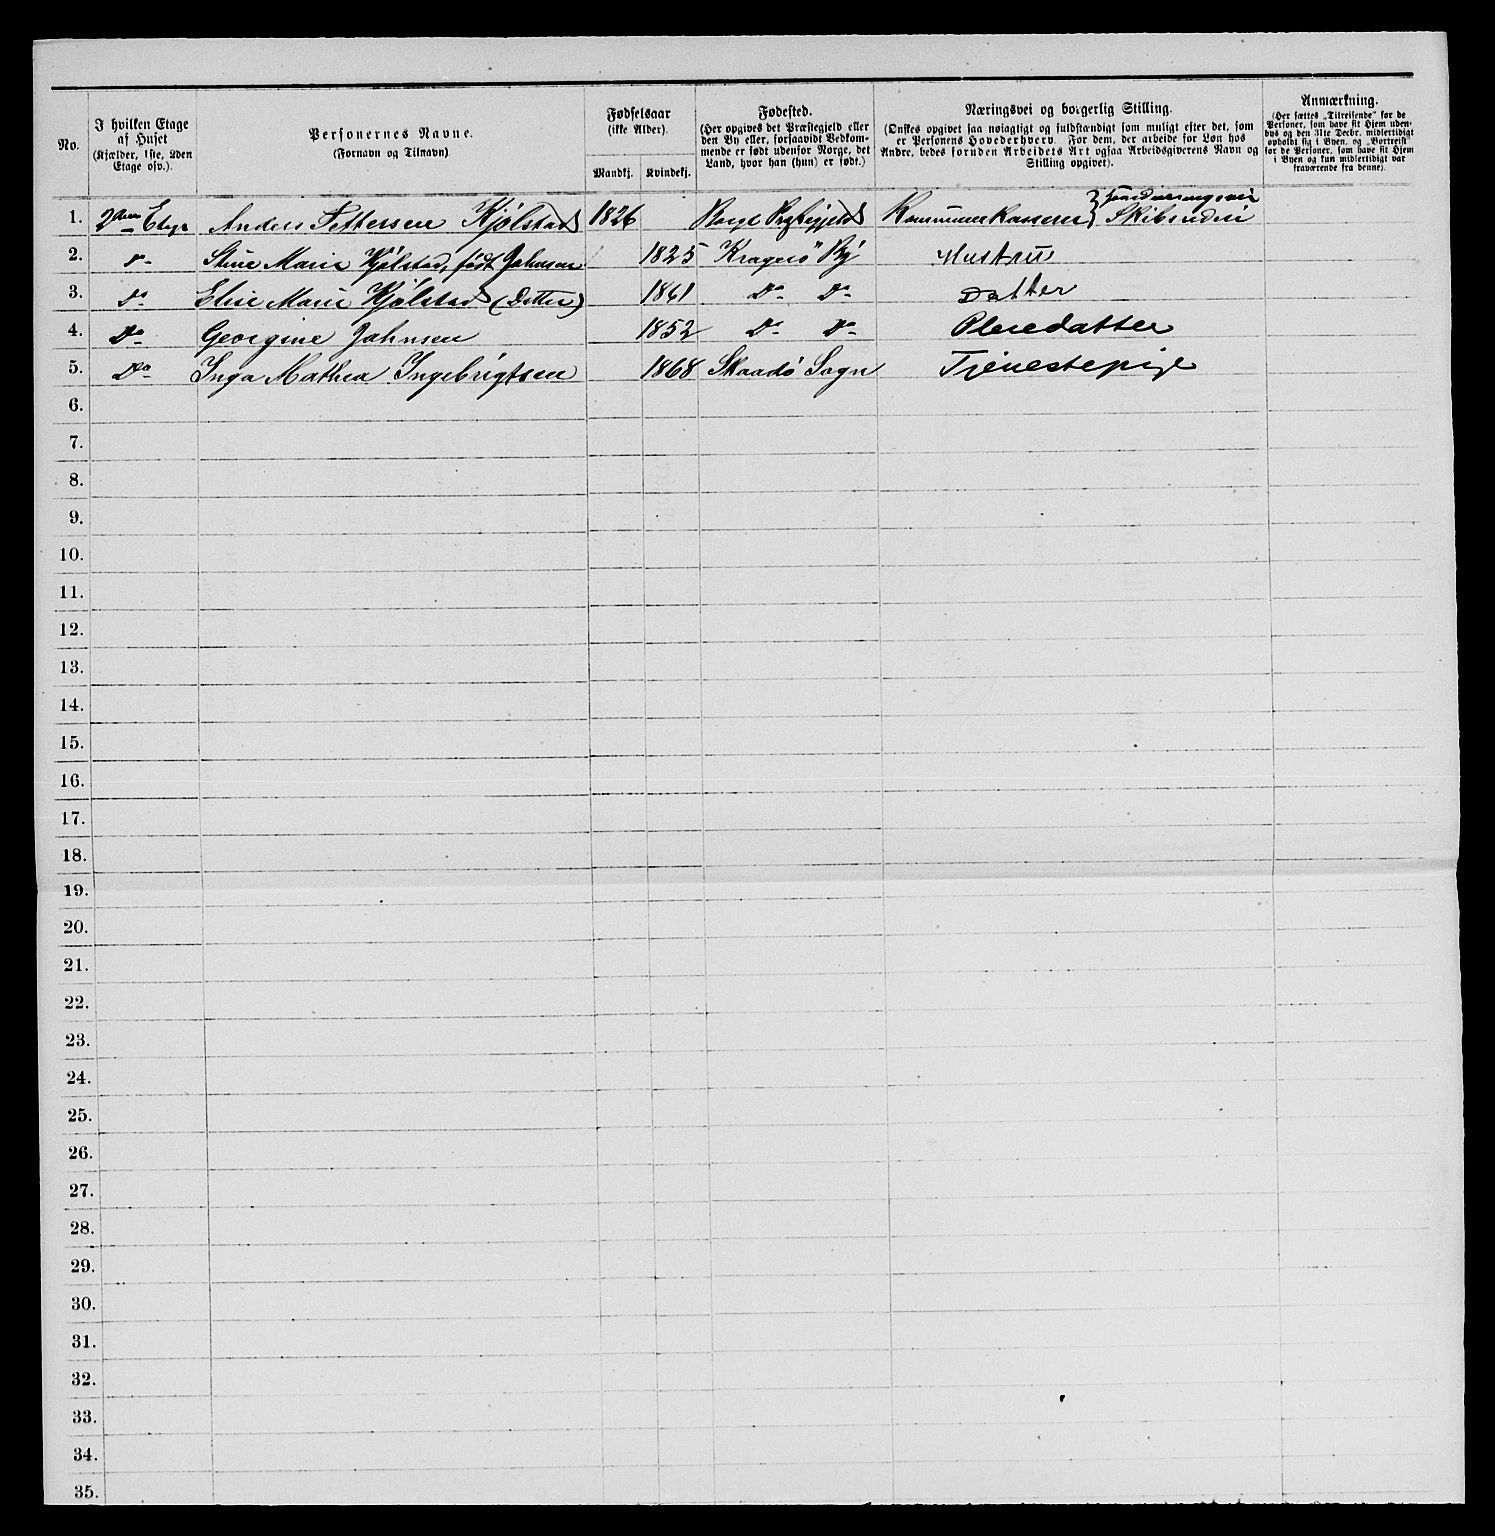 No.
I hvilken Etage
af Huset
(Kjælder, 1ste, 2den
Etage osv.).
Personernes Navne.
(Fornavn og Tilnavn)
Fødselsaar
(ikke Alder).
Mandkj.
Kvindekj.
Fødested.
(Her opgives det Præstegjeld eller
den By eller, forsaavidt Vedkom-
mende er født udenfor Norge, det
Land, hvor han (hun) er født.)
Næringsvei og borgerlig Stilling.
(Ønskes opgivet saa nøiagtigt og fuldstændigt som muligt efter det, som
er Personens Hovederhverv. For dem, der arbeide for Løn hos
Andre, bedes foruden Arbeidets Art ogsaa Arbeidsgiverens Navn og
Stilling opgivet).
Anmærkning.
(Her sættes „Tilreisende“ for de
Personer, som have sit Hjem uden-
bys og den 31te Decbr. midlertidigt
opholdt sig i Byen, og „Bortreist“
for de Personer, som have sit Hjem
i Byen og kun midlertidigt var
fraværende fra denne).
1. 2den Etage Anders Pettersen Kjølstad 1826 Borge Kommunekasserer,
2. Do Stine Marie Kjølstad, født Johnsen 1825 Kragerø By Hustru
3. Do Elise Marie Kjølstad (Datter) 1861 Do Do Datter
4. Do Georgine Johnsen 1852 Do Do Pleiedatter
5. Do Inga Mathea Ingebrigtsen 1868 Skaadø Sogn Tjenestepige
6.
7.
8.
9.
10.
11.
12.
13.
14.
15.
16.
17.
18.
19.
20.
21.
22.
23.
24.
25.
26.
27.
28.
29.
30.
31.
32.
33.
34.
35.